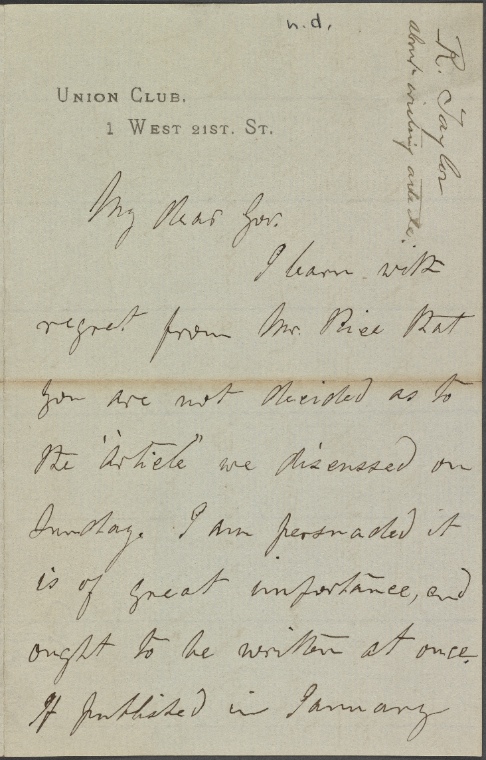 n.d.
R. Taylor
about writing article.
UNION CLUB.
1 WEST 21ST. ST.
My dear Gov.
I learn with
regret from Mr. Rice that
you are not decided as to
the "Article" we discussed on
Sunday. I am persuaded it
is of great importance, and
ought to be written at once.
If published in January